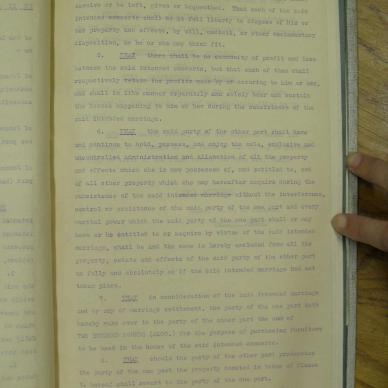 receive or be left, given or bequeathed. That each of the said
intended consorts shall be at full liberty to dispose of his or
her property and effects, by will, codicil, or other testamentary
disposition, as he or she may think fit.
5. THAT there shall be no community of profit and loss
between the said intended consorts, but that each of them shall
respectively retain the profits made by or accruing to him or her,
and shall in like manner separately and solely bear and sustain
the losses happening to him or her during the subsistence of the
said intended marriage.
6. THAT the said party of the other part shall have
and continue to hold, possess, and enjoy the sole, exclusive and
uncontrolled administration and alienation of all the property
and effects which she is now possessed of, and entitled to, and
of all other property which she may hereafter acquire during the
subsistence of the said intended marriage without the interference,
control or assistance of the said party of the one part and every
marital power which the said party of the one part shall or may
have or be entitled to or acquire by virtue of the said intended
marriage, shall be and the same is hereby excluded from all the
property, estate and effects of the said party of the other part
as fully and absolutely as if the said intended marriage had not
taken place.
7. THAT in consideration of the said intended marriage
and by way of marriage settlement, the party of the one part doth
hereby make over to the party of the other part the sum of
HUNDRED POUNDS for the purpose of purchasing furniture
to be used in the house of the said intended consorts.
8. THAT should the party of the other part predecease
the party of the one part the property donated in terms of Clause
7. hereof shall revert to the party of the one part.